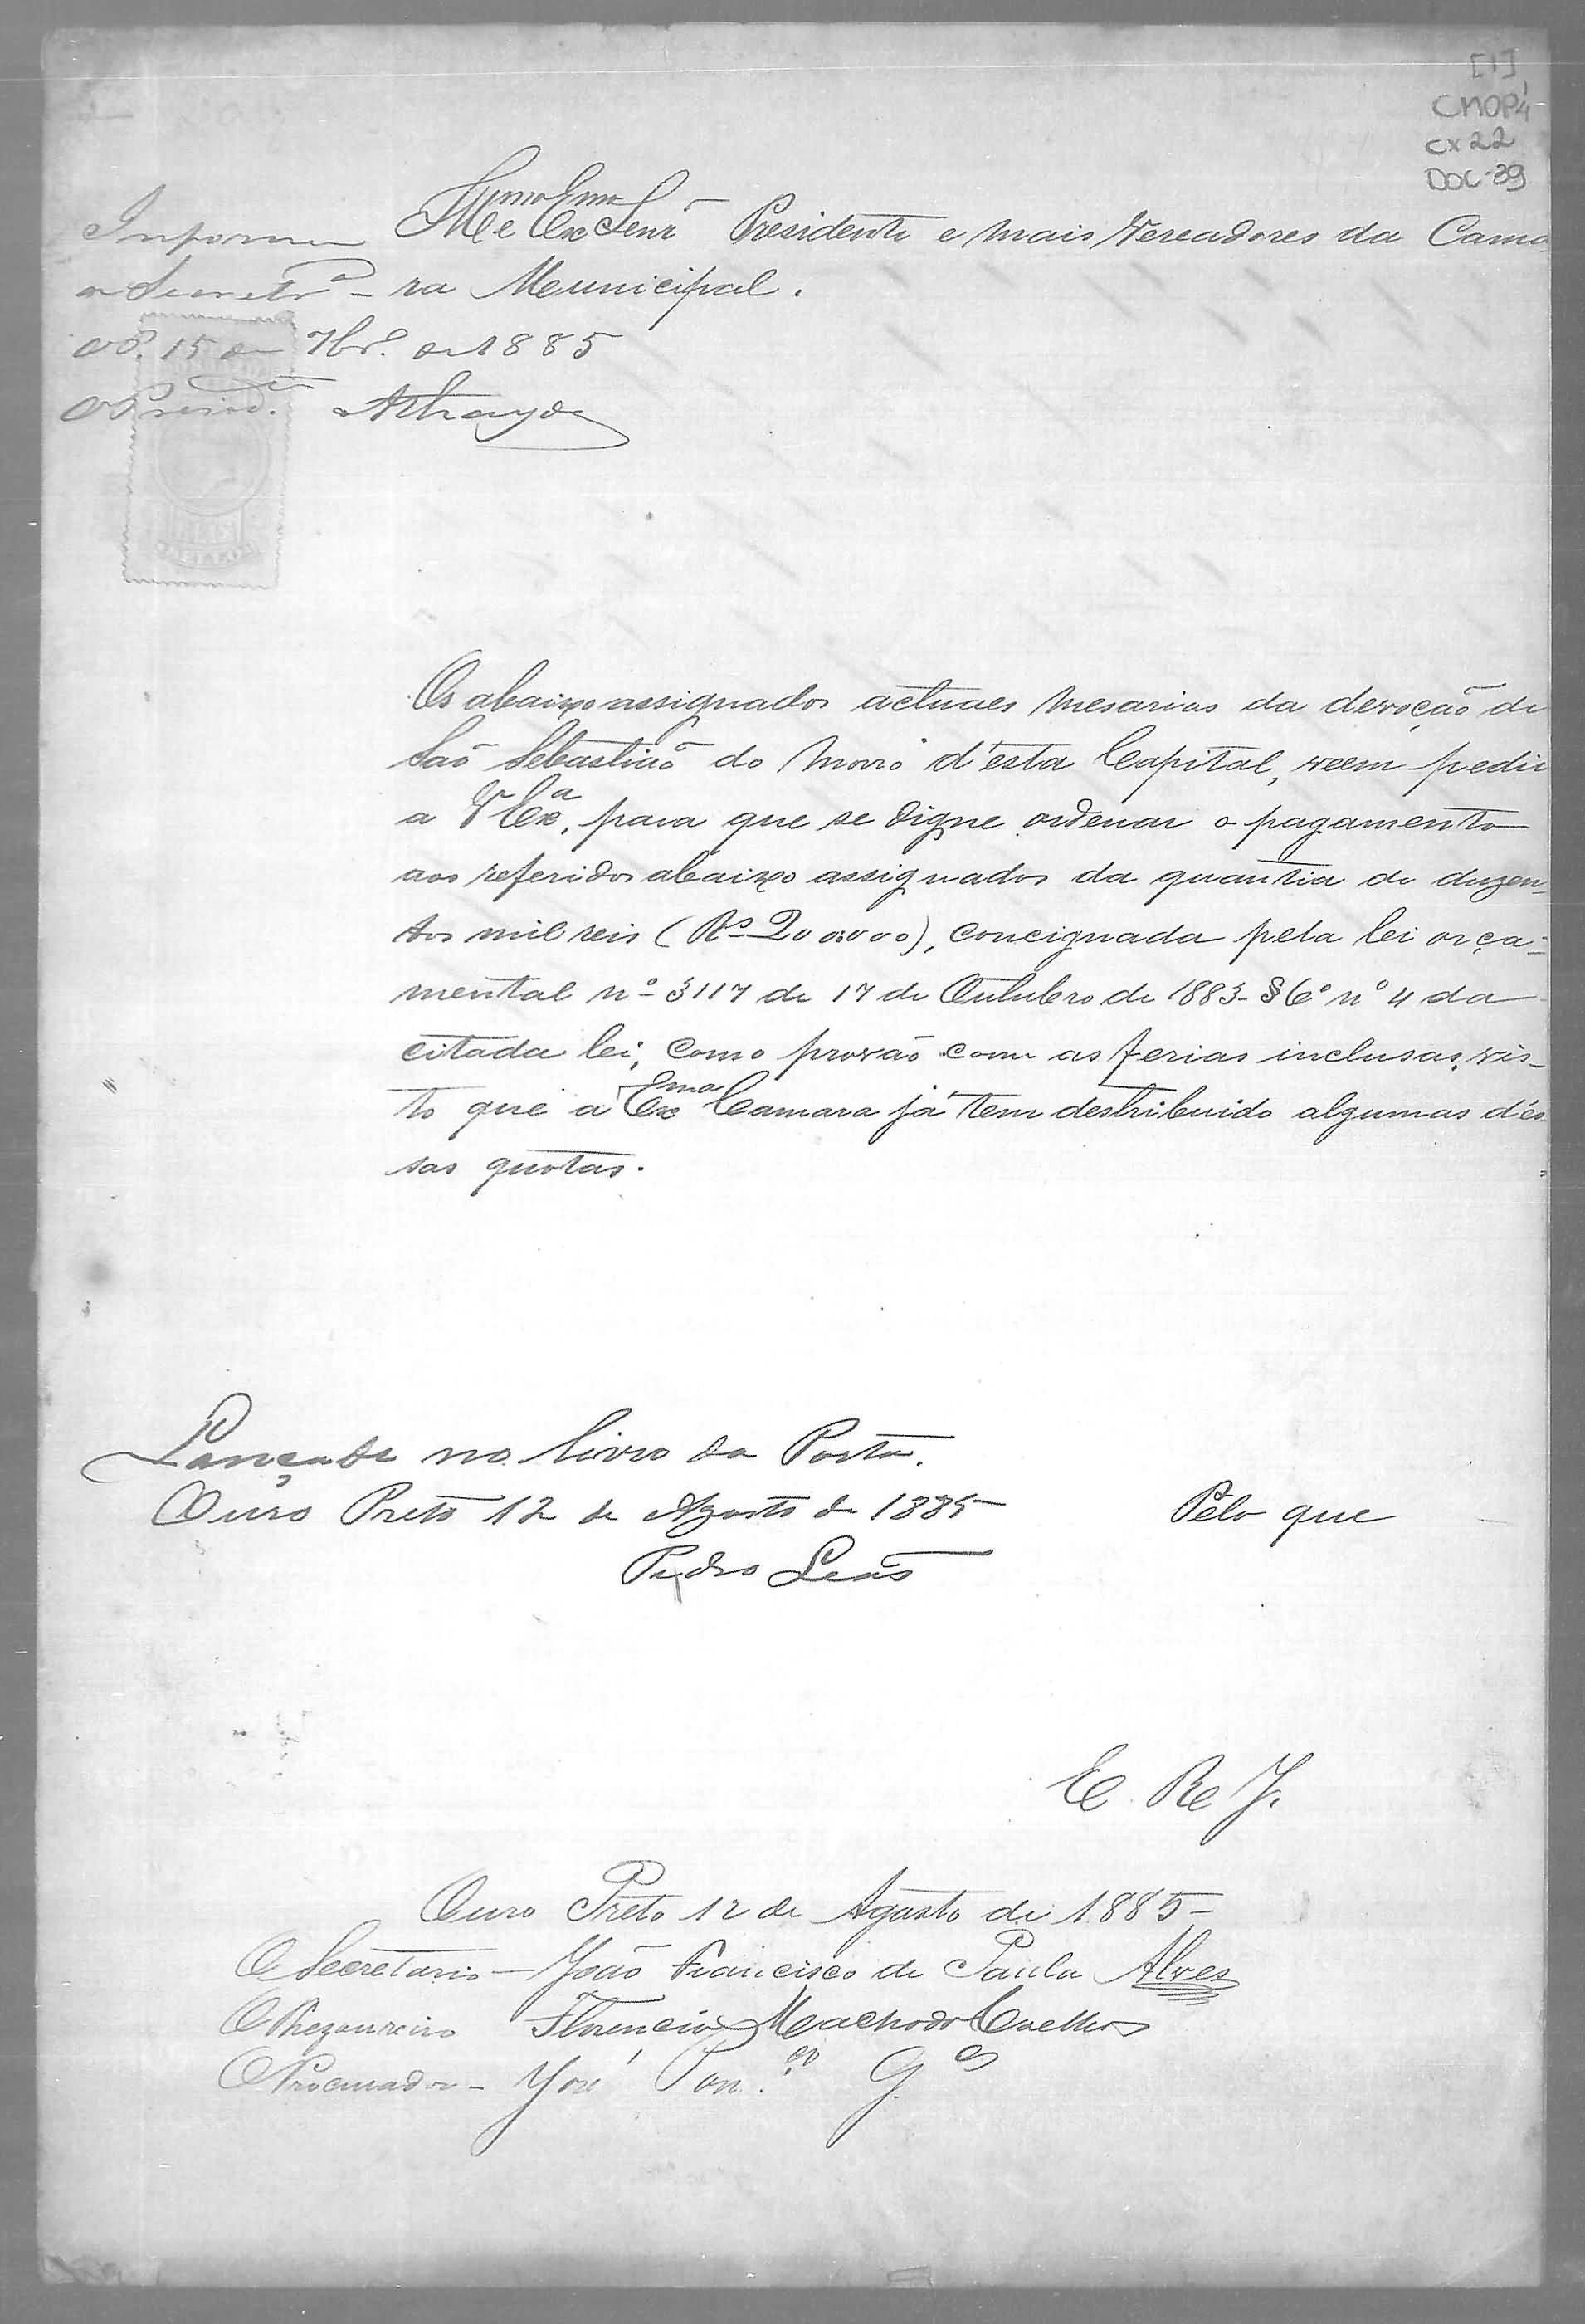 [1]
CMOP4
CX 22
DOC-39
Illmo e Exmo Senr Presidente e mais Vereadores da Cama
ra Municipal.
Informe
a Secretrª
OP. 15 de 7br.º de 1885
O Presid.te Athayde
Os abaixo assignados actuaes Mesarios da devoção de
São Sebastião do Morro d'esta Capital, veem pedir
a V Exª, para que se digne ordenar o pagamento
aos referidos abaixo assignados da quantia de duzen-
tos mil reis (Rs 200:000), concignada pela lei orça-
mental nº 3117 de 17 de Outubro de 1883 - § 6º nº 4 da
citada lei, como provão com as ferias inclusas, vis-
to que a Exma Camara já tem destribuido algumas d'es-
sas quotas.
Lançado no livro da Porta.
Ouro Preto 12 de Agosto de 1885
Pedro Leão
Pelo que
E. Re J.
Ouro Preto 12 de Agosto de 1885
O Secretario - João Francisco de Paula Alves
O Thezoureiro Florencio Machado Coelho
O Procurador - José